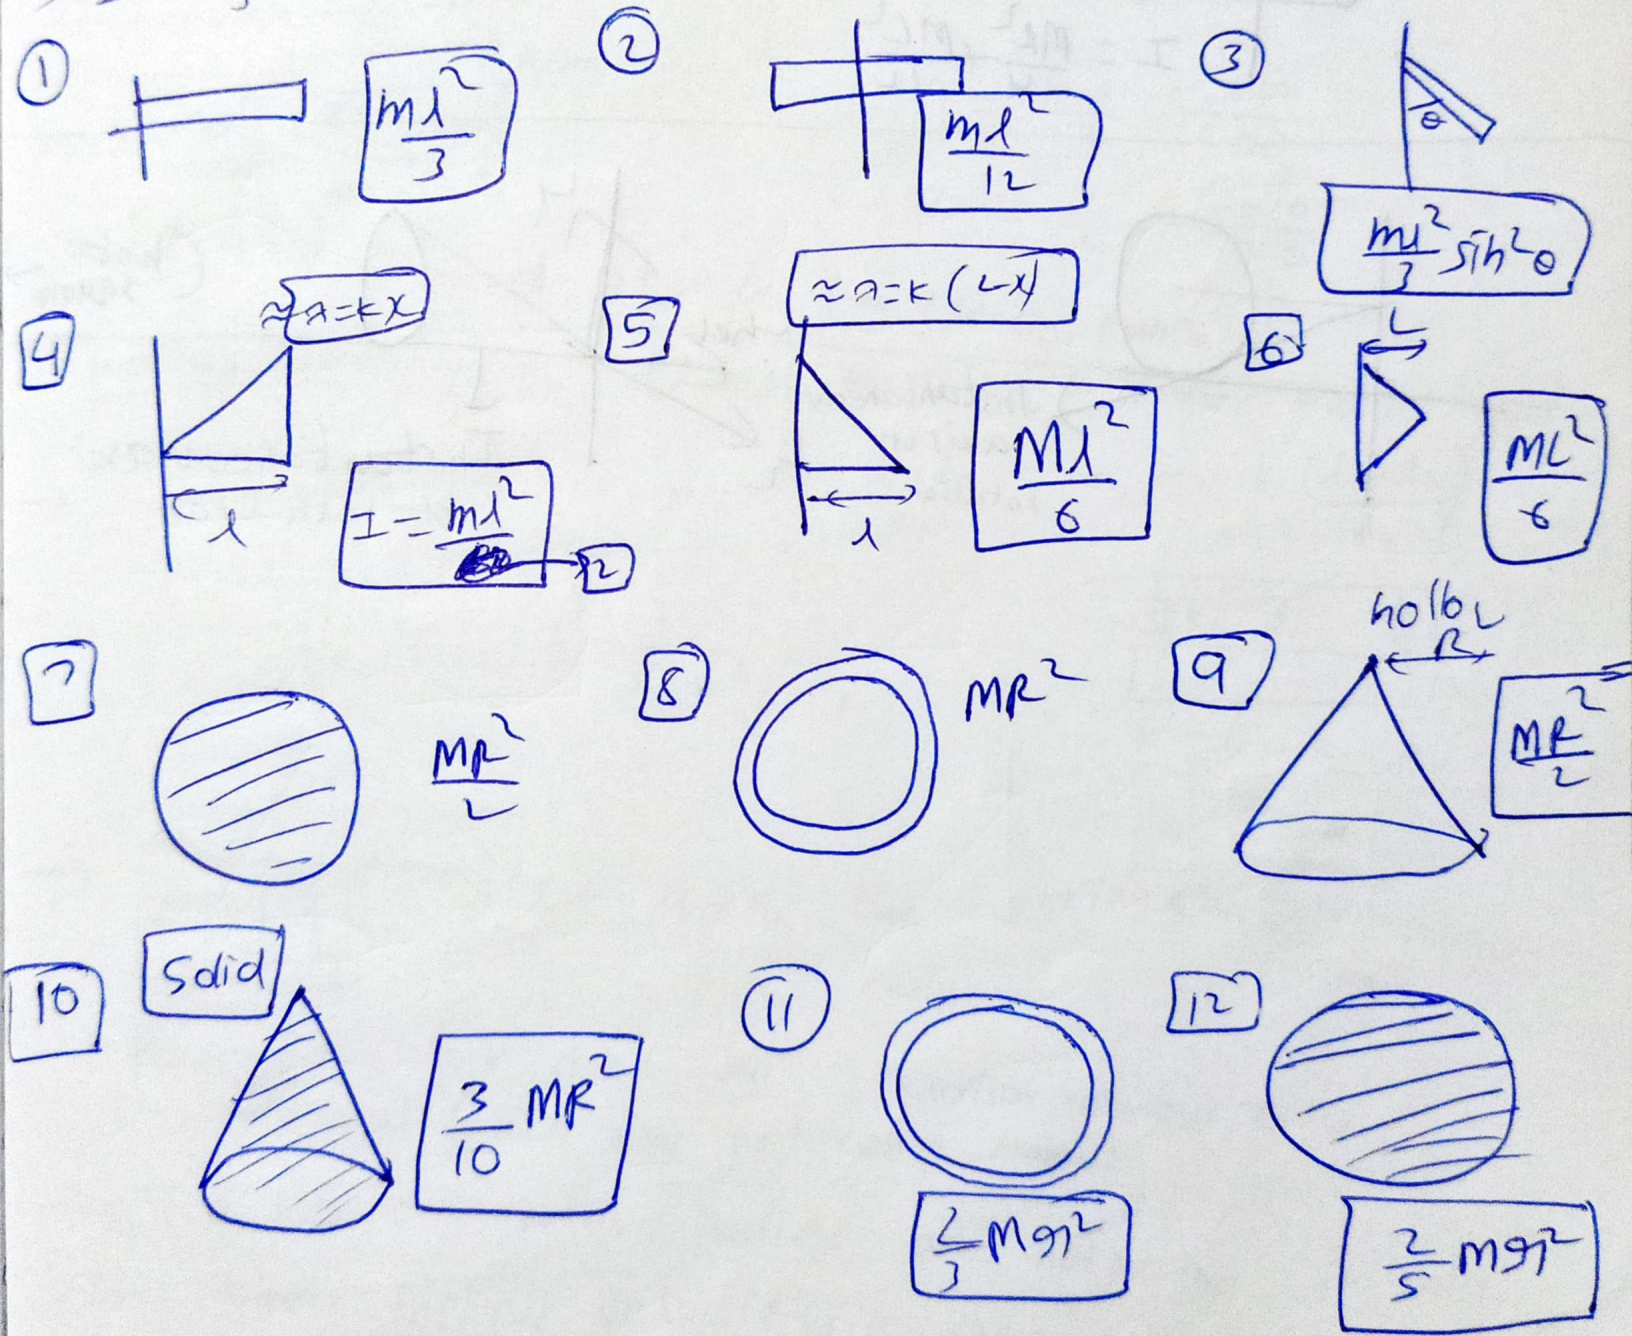 ① ml²/3
② ml²/12
③ θ ml²/3 sin²θ
4 ≈ λ=kx
l
I = ml²/2
5 ≈ λ=k(L-x)
l
Ml²/6
6 L
ML²/6
7 MR²/2
8 MR²
9 hollow
R
MR²/2
10 Solid
3/10 MR²
⑪ 2/3 Mr²
12 2/5 mr²